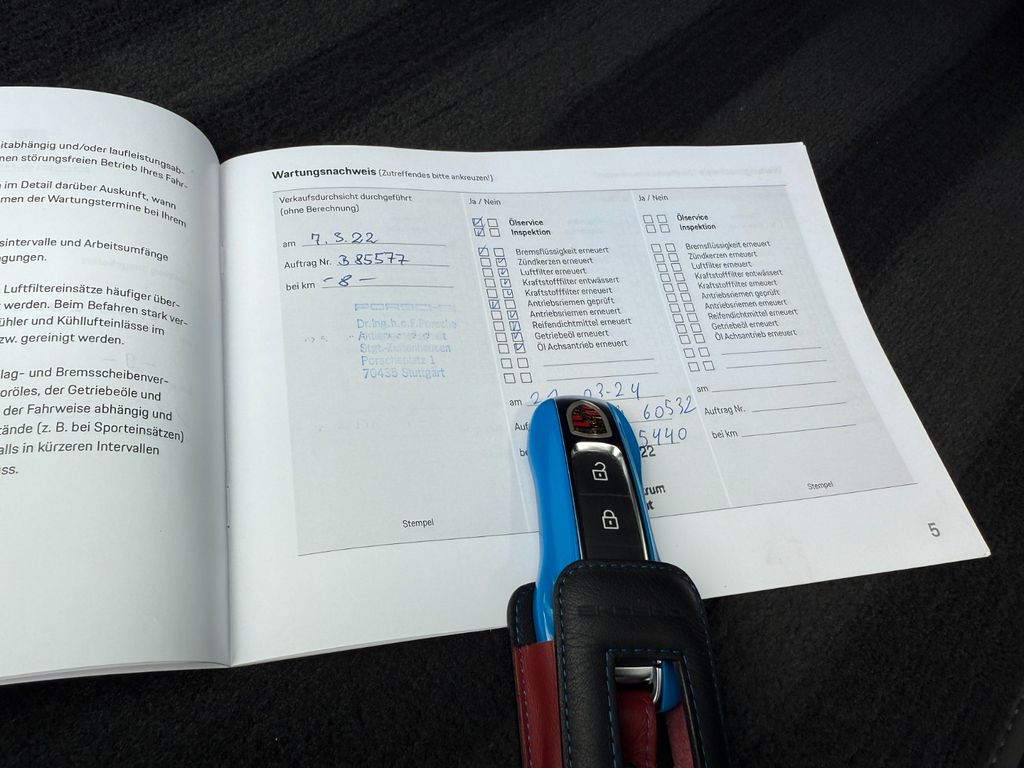 itabhängig und/oder laufleistungsab-
nen störungsfreien Betrieb Ihres Fahr-
im Detail darüber Auskunft, wann
men der Wartungstermine bei Ihrem
sintervalle und Arbeitsumfänge
gungen.
Luftfiltereinsätze häufiger über-
werden. Beim Befahren stark ver-
ühler und Kühllufteinlässe im
zw. gereinigt werden.
lag- und Bremsscheibenver-
oröles, der Getriebeöle und
der Fahrweise abhängig und
tände (z. B. bei Sporteinsätzen)
alls in kürzeren Intervallen
ss.
Wartungsnachweis (Zutreffendes bitte ankreuzen!)
Verkaufsdurchsicht durchgeführt
(ohne Berechnung)
am 7.3.22
Auftrag Nr. B 85577
bei km -8-
PORSCHE
Dr.Ing.h.c.F.Porsche
Aktiengesellschaft
Stgt-Zuffenhausen
Porscheplatz 1
70435 Stuttgart
Stempel
Ja / Nein
Ölservice
Inspektion
Bremsflüssigkeit erneuert
Zündkerzen erneuert
Luftfilter erneuert
Kraftstofffilter entwässert
Kraftstofffilter erneuert
Antriebsriemen geprüft
Antriebsriemen erneuert
Reifendichtmittel erneuert
Getriebeöl erneuert
Öl Achsantrieb erneuert
am 03-24
60532
5440
22
trum
Ja / Nein
Ölservice
Inspektion
Bremsflüssigkeit erneuert
Zündkerzen erneuert
Luftfilter erneuert
Kraftstofffilter entwässert
Kraftstofffilter erneuert
Antriebsriemen geprüft
Antriebsriemen erneuert
Reifendichtmittel erneuert
Getriebeöl erneuert
Öl Achsantrieb erneuert
am
Auftrag Nr.
bei km
Stempel
5